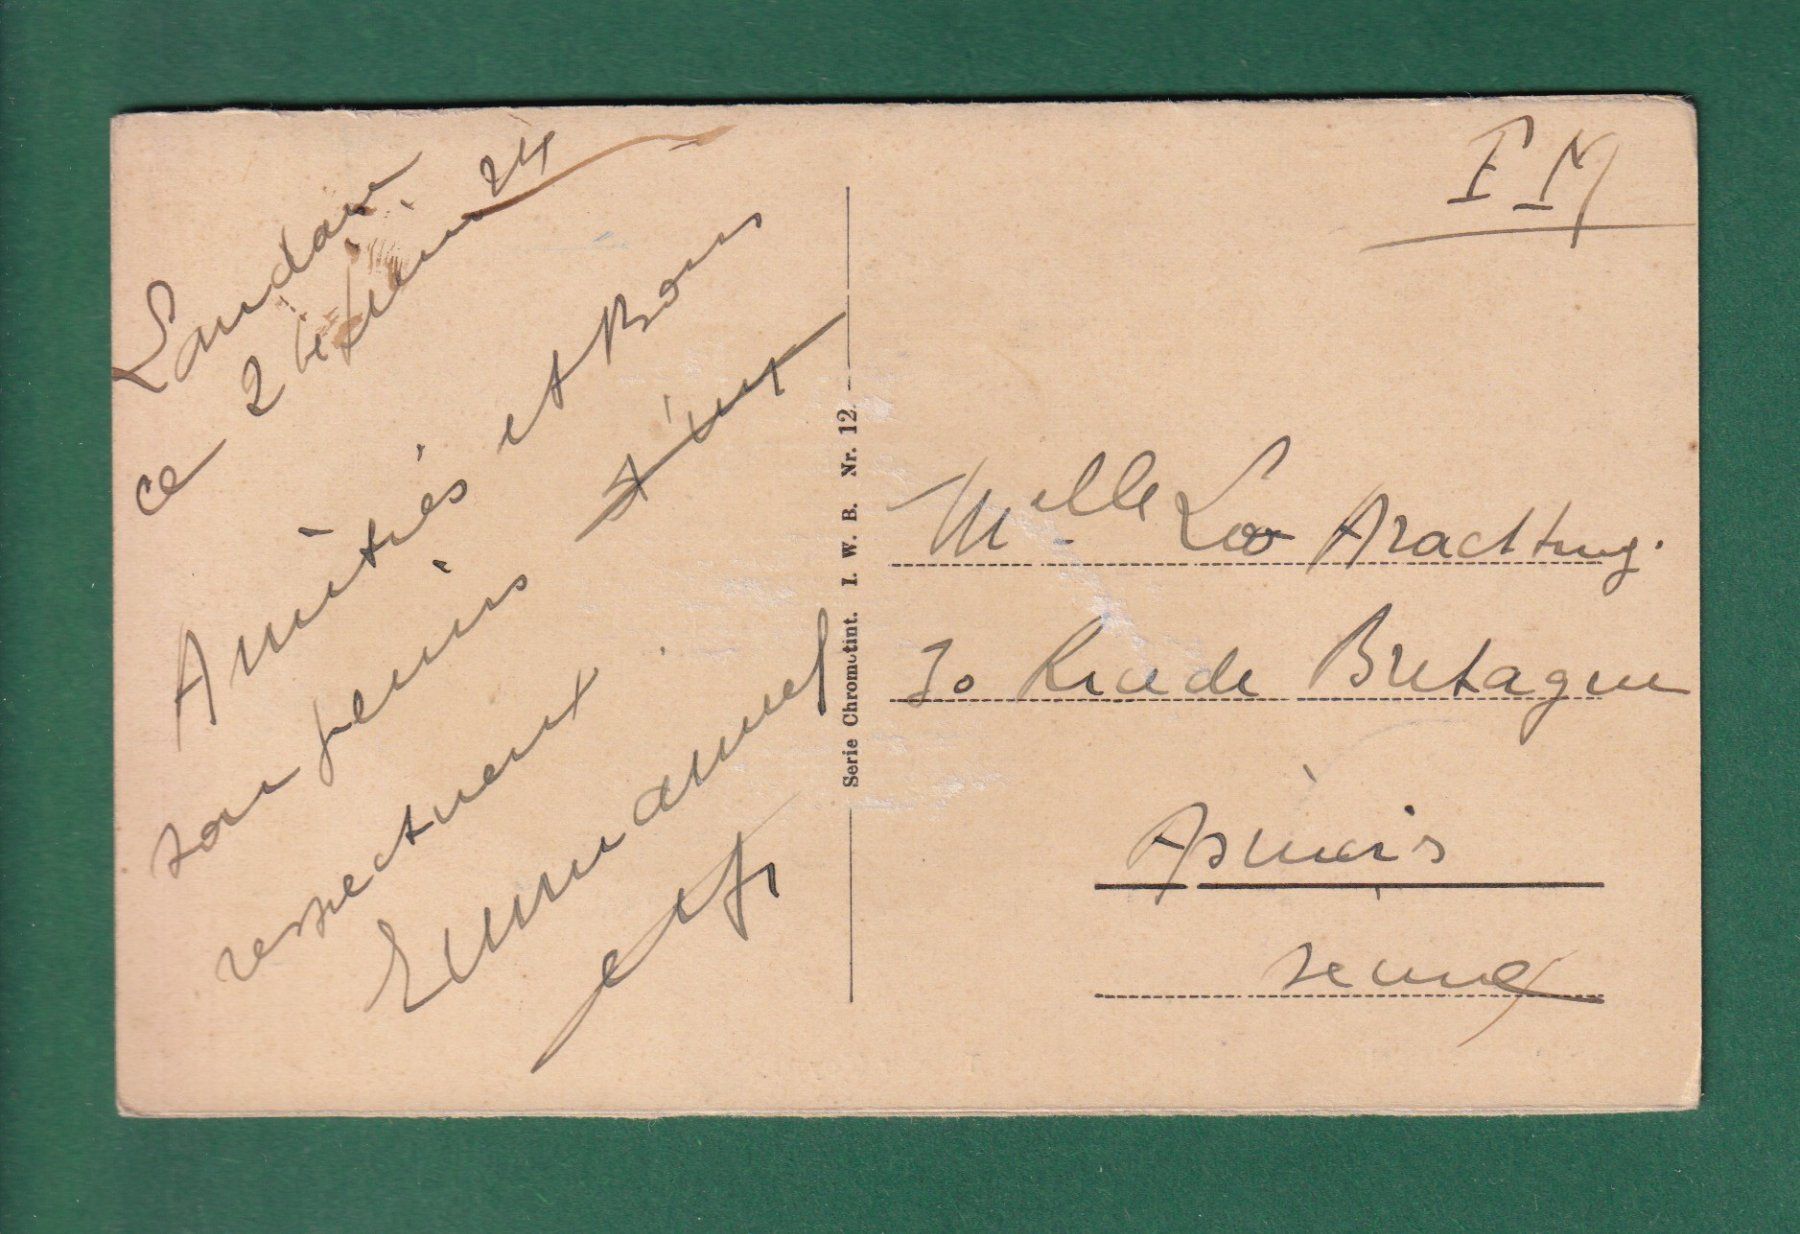 Landau
ce 2 24
Amitiés et Bons
souvenirs
respectueux
Emmanuel
Serie Chromotint. I. W. B. Nr. 12.
FM
Melle Loo Arachtung.
30 Rue de Bretagne
Asnieris
seine